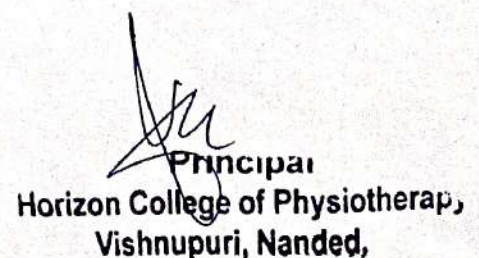 Principal
Horizon College of Physiotherapy
Vishnupuri, Nanded,